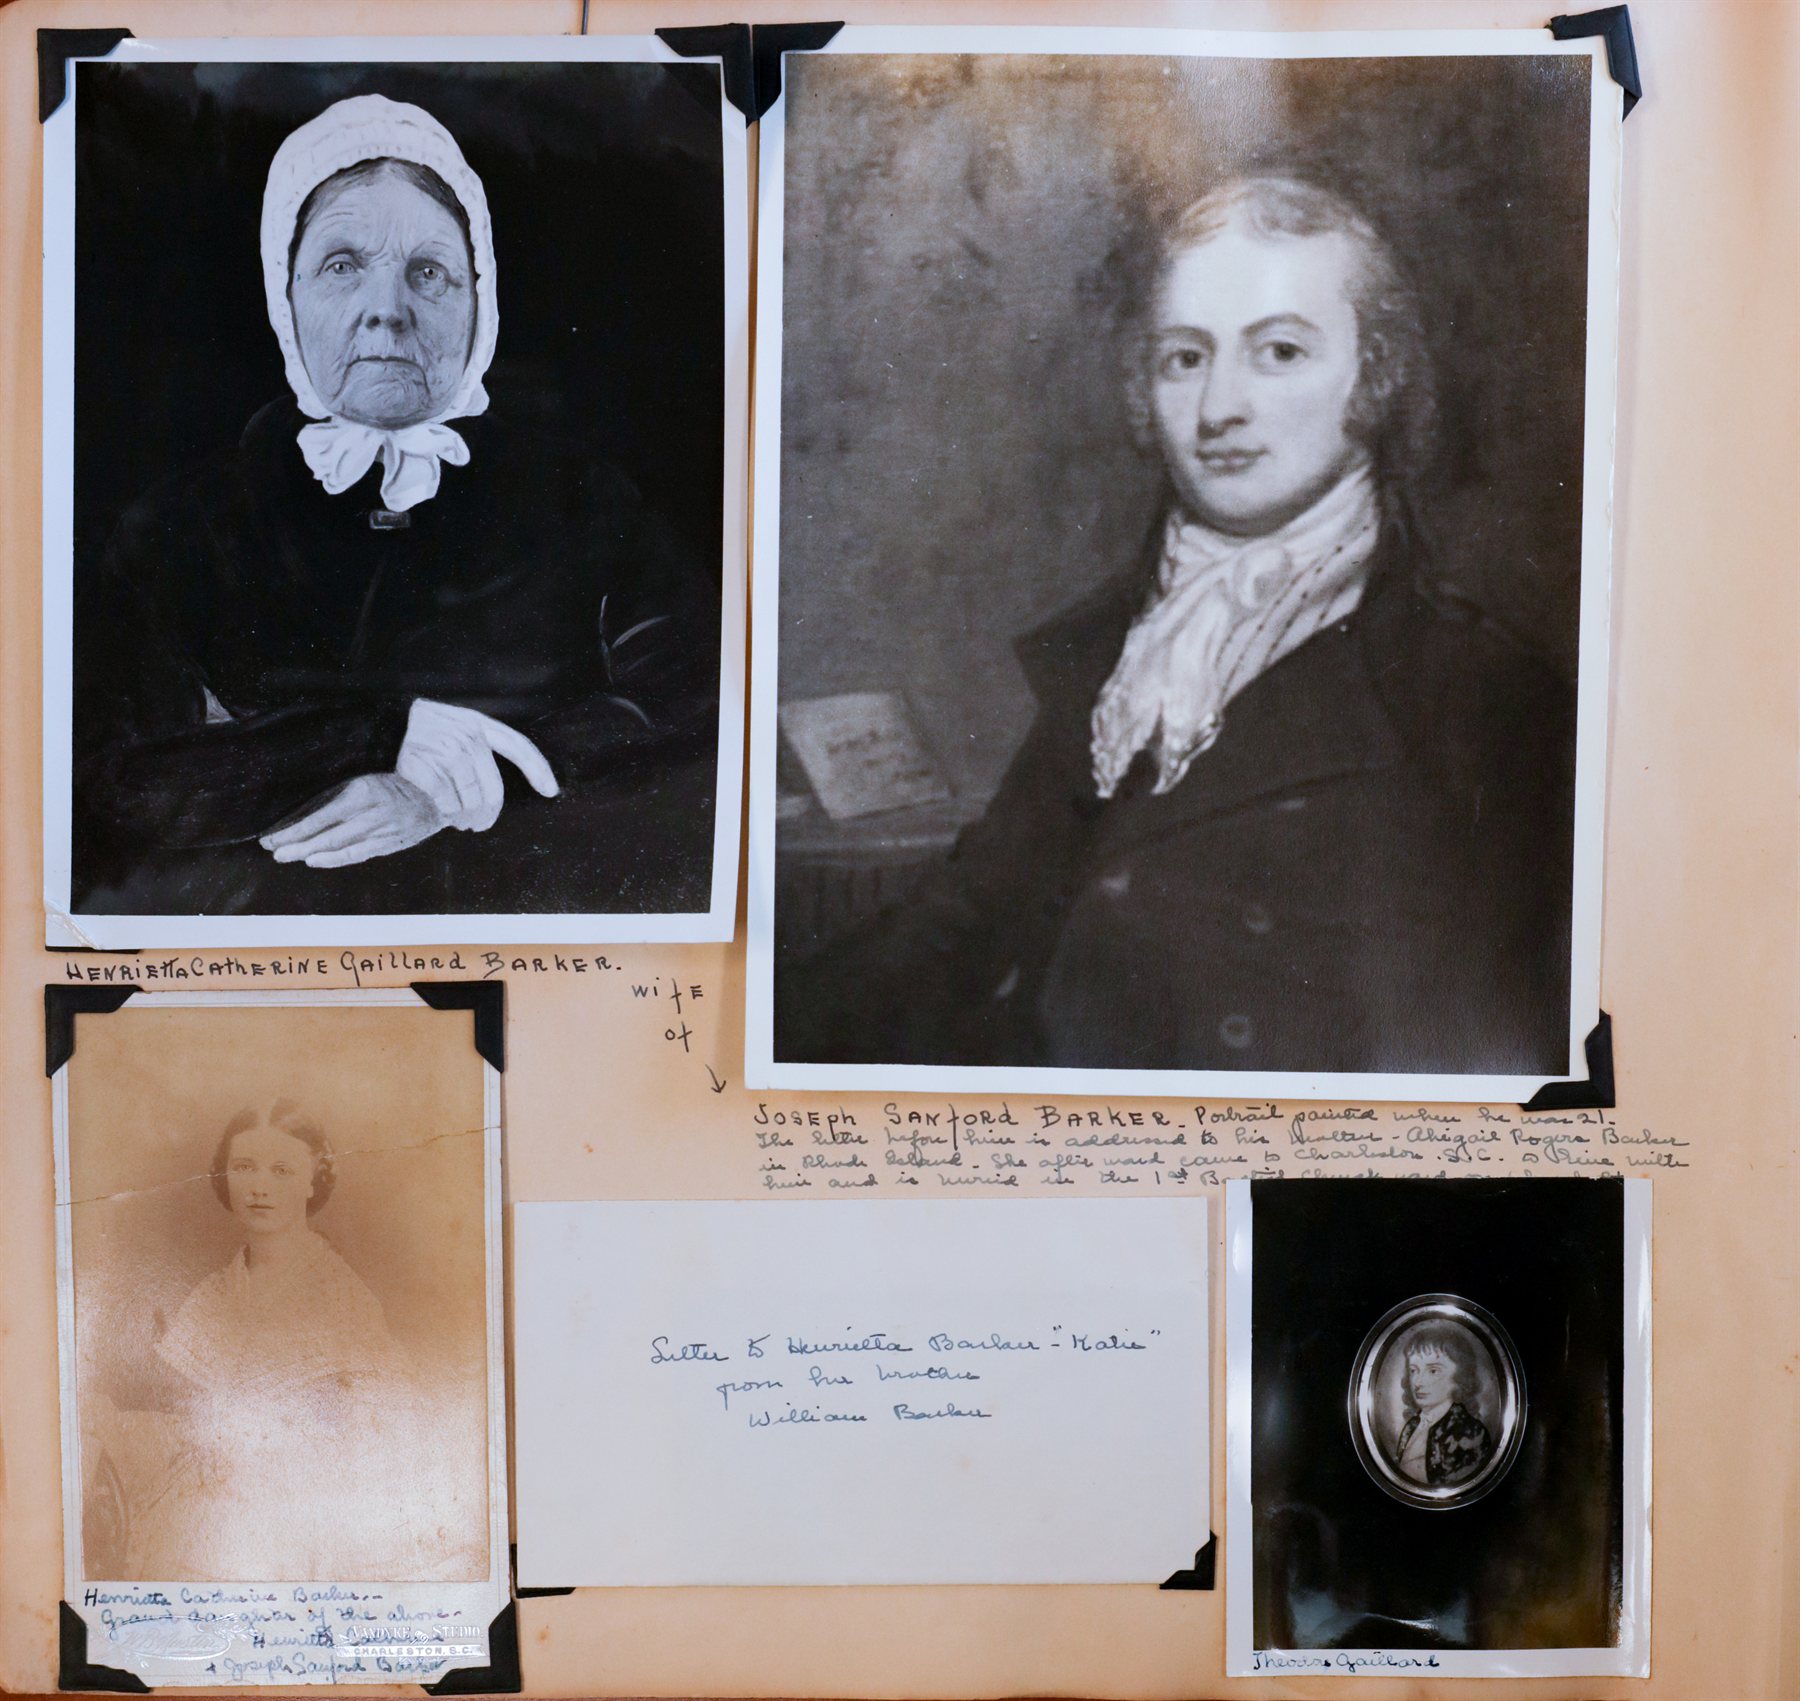 HENRIETTA CATHERINE GAILLARD BARKER.
WIFE
OF
JOSEPH SANFORD BARKER. Portrait painted when he was 21.
The letter before him is addressed to his mother - Abigail Rogers Barker
in Rhode Island. She afterward came to Charleston. S.C. to live with
him and is buried in the 1st Baptist Church yard
Letter to Henrietta Barker - "Katie"
from her brother
William Barker
Henrietta Catherine Barker -
Grand daughter of the above -
Henrietta Catherine
& Joseph Sanford Barker
VANDYKE STUDIO
CHARLESTON, S.C.
Theodore Gaillard